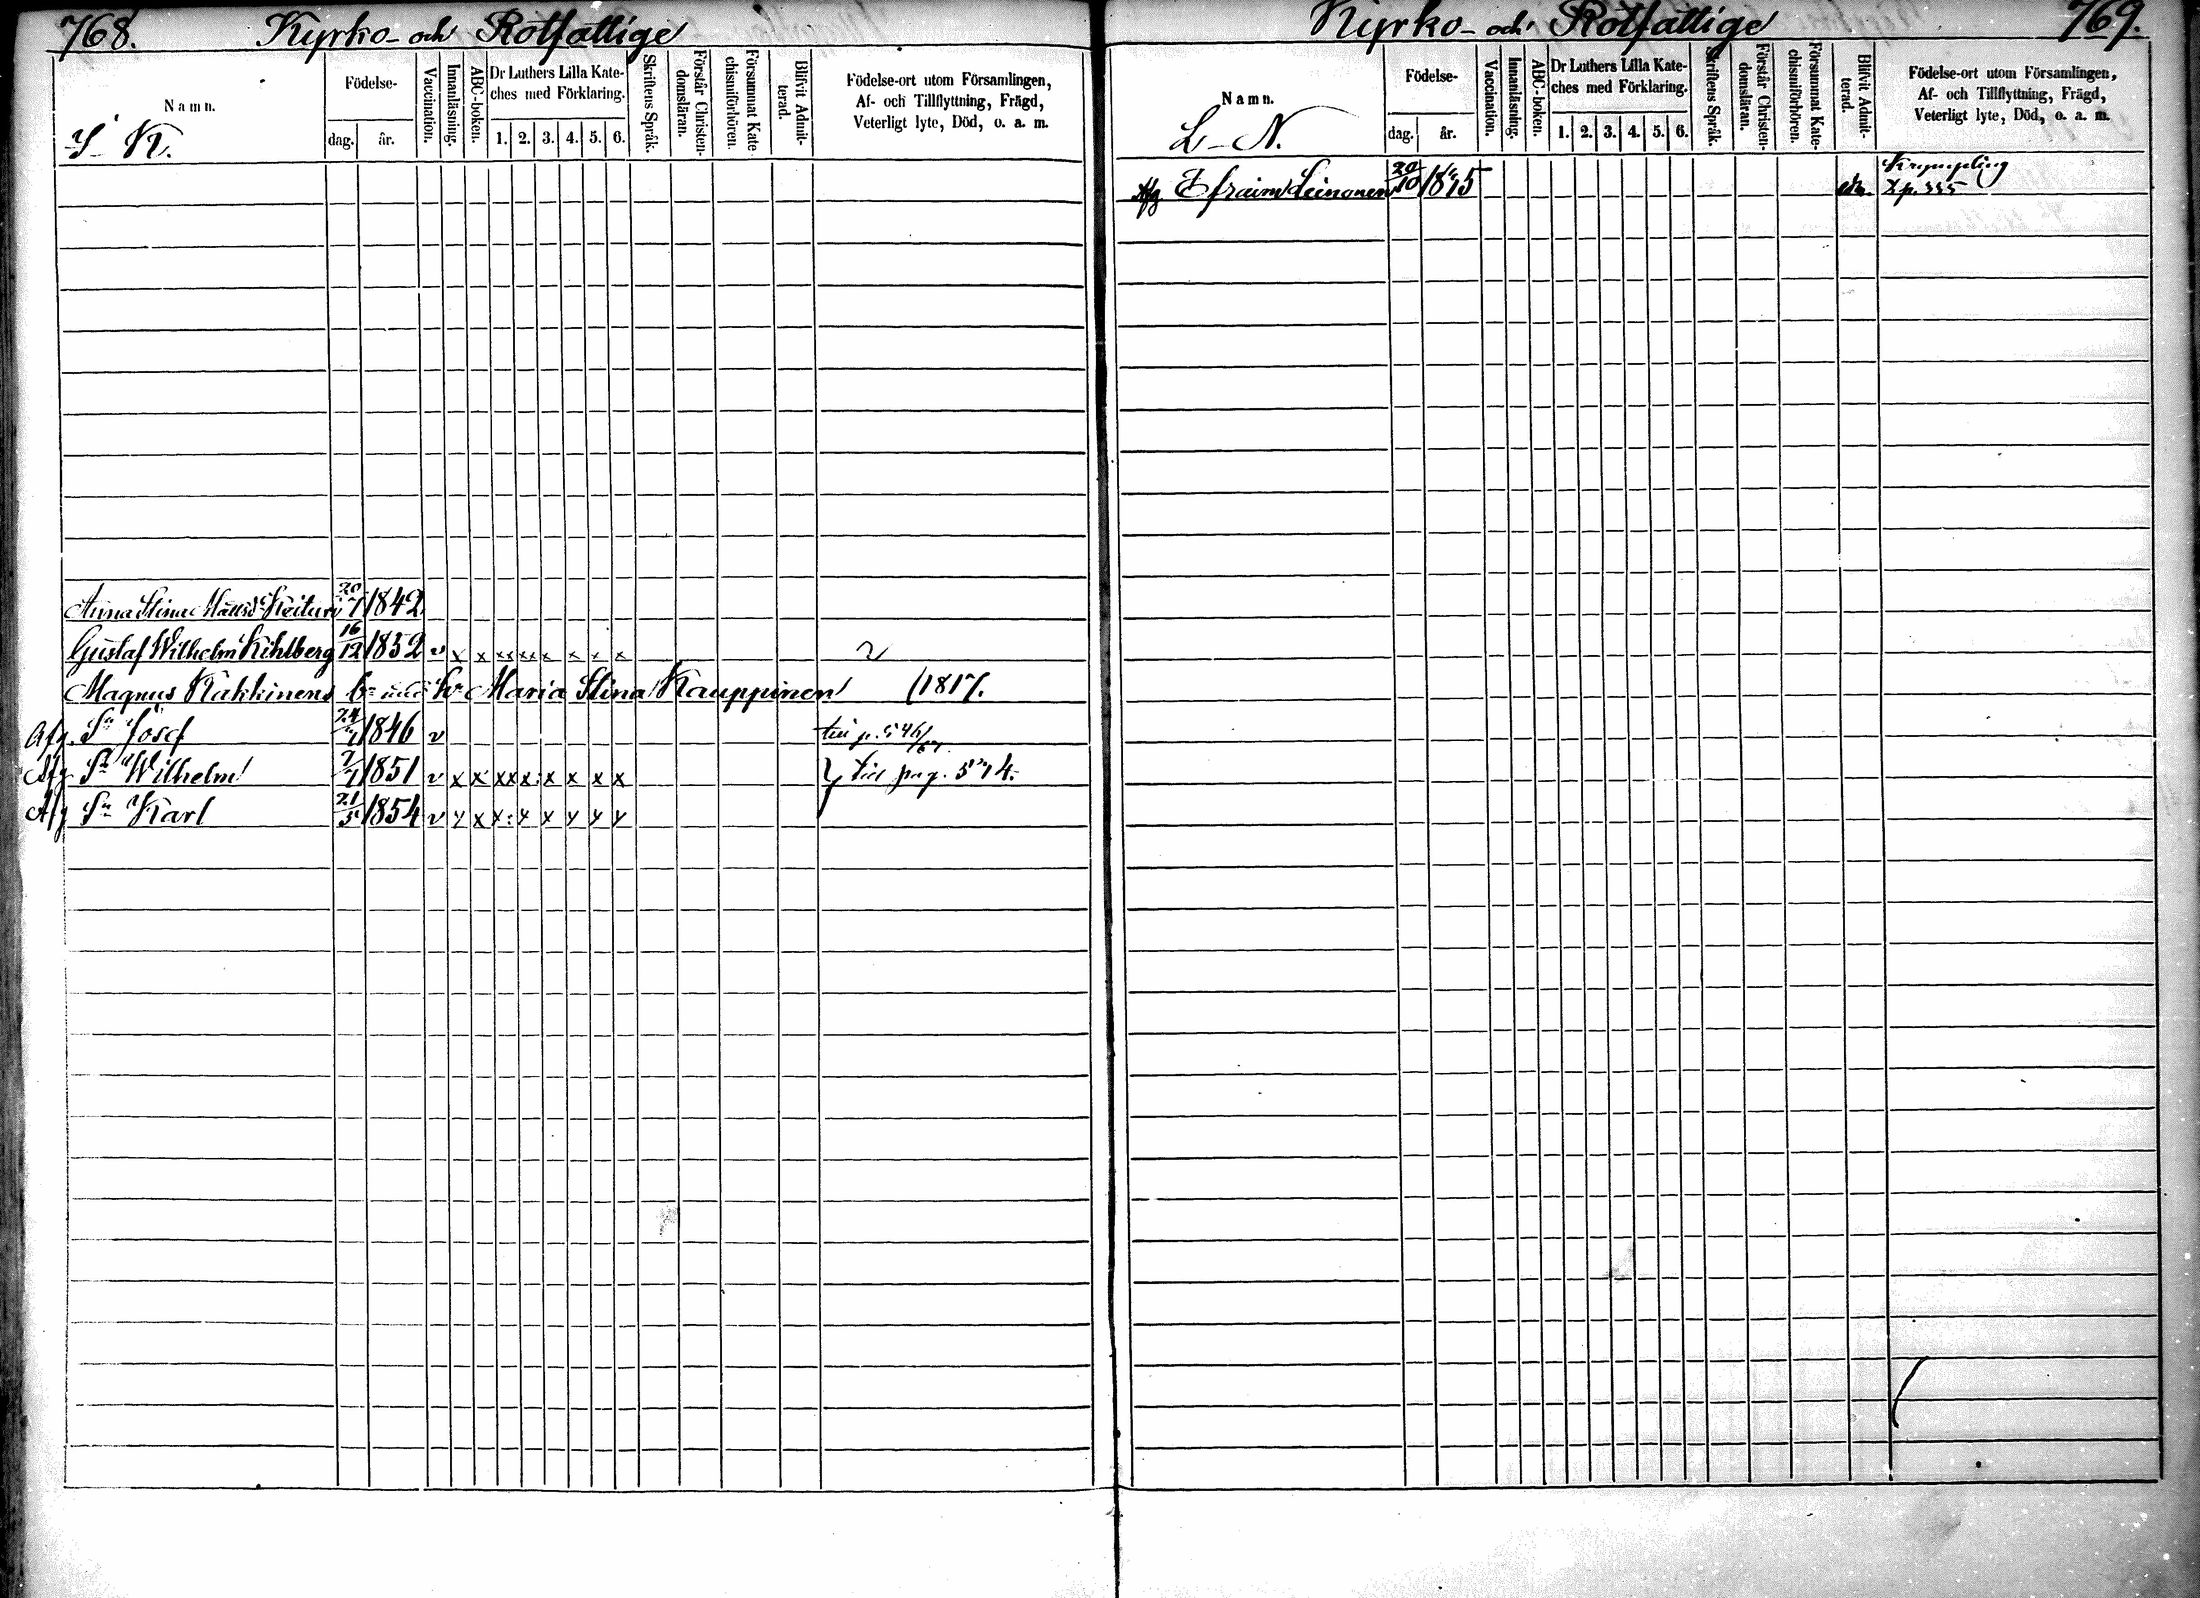 768. Kyrko- och Rotfattige
Namn.
Födelse-
dag. år.
Vaccination.
Innanläsning.
ABC-boken.
Dr Luthers Lilla Kate-
ches med Förklaring.
1. 2. 3. 4. 5. 6.
Skriftens Språk.
Förstår Christen-
domsläran.
Försummat Kate-
chismiförhören.
Blifvit Admit-
terad.
Födelse-ort utom Församlingen,
Af- och Tillflyttning, Frägd,
Veterligt lyte, Död, o. a. m.
K.
Anna Stina Keituri 20/7 1842
Gustaf Wilhelm Kihlberg 16/12 1852 v x x xx xx x x x x
Magnus Kakkinens Maria Stina Kauppinen (1817.
Afg. Sn Josef 24/7 1846 v till p. 546/67.
Afg Sn Wilhelm 7/7 1851 v x x xx x x x x x till pag. 574.
Afg Sn Karl 21/5 1854 v x x x x x x x x
Kyrko- och Rotfattige 769.
Namn.
Födelse-
dag. år.
Vaccination.
Innanläsning.
ABC-boken.
Dr Luthers Lilla Kate-
ches med Förklaring.
1. 2. 3. 4. 5. 6.
Skriftens Språk.
Förstår Christen-
domsläran.
Försummat Kate-
chismiförhören.
Blifvit Admit-
terad.
Födelse-ort utom Församlingen,
Af- och Tillflyttning, Frägd,
Veterligt lyte, Död, o. a. m.
L-N.
Krympling
Afg Efraim Leinonen 20/10 1875 p. 335